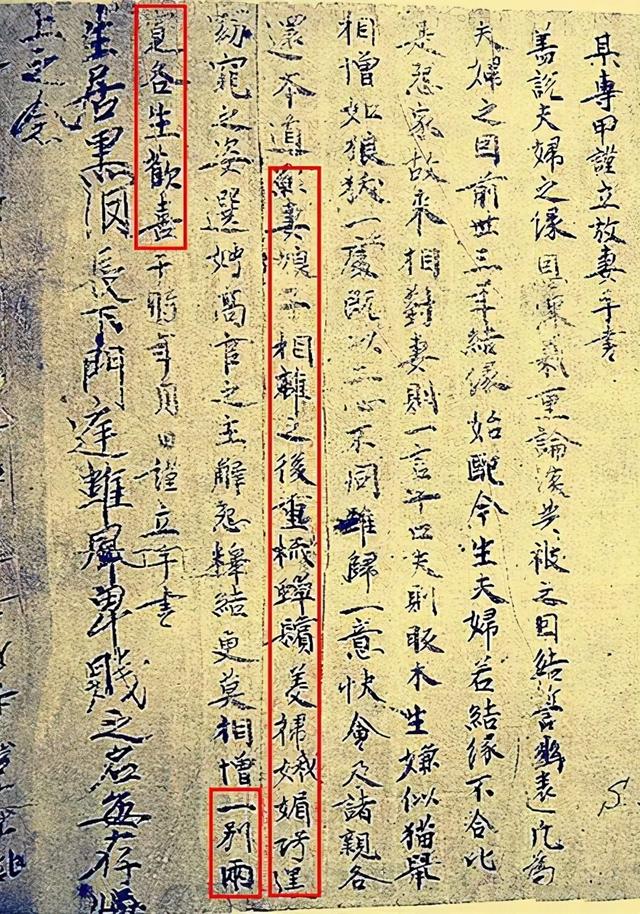 某專甲謹立放妻手書
蓋說夫婦之緣恩深義重論談共被之因結誓幽遠凡為
夫婦之因前世三年結緣始配今生夫婦若結緣不合比
是怨家故來相對妻則一言十口夫則販木生嫌似猫鼠
相憎如狼一處既以二心不同難歸一意快會及諸親各
還本道願妻娘子相離之後重梳蟬鬢美裙娥媚巧逞
窈窕之姿選娉高官之主解怨釋結更莫相憎一別兩
寬各生歡喜于時年月日謹立手書
生居黑洞長下門庭雖卑賤之名無存
上之念